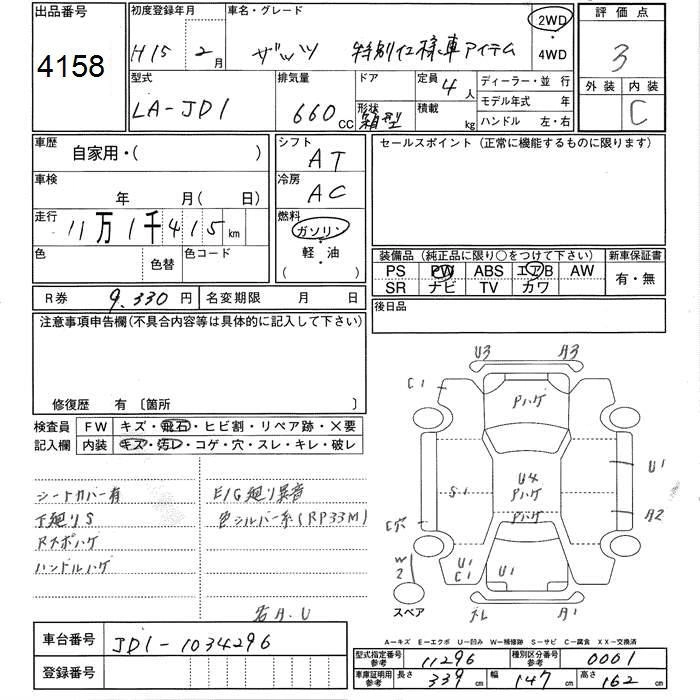 出品番号
4158
初度登録年月
H15 2月
車名・グレード
ザッツ 特別仕様車アイテム
2WD
4WD
評価点
3
外装 内装
C
型式
LA-JD1
排気量
660 CC
ドア
形状
箱型
定員 4人
積載 kg
ディーラー・並行
モデル年式 年
ハンドル 左・右
車歴
自家用・( )
車検
年 月( 日)
走行
11万1千415km
色
色替
色コード
シフト
AT
冷房
AC
燃料
ガソリン
・
軽・油
( )
セールスポイント (正常に機能するものに限ります)
装備品 (純正品に限り○をつけて下さい) 新車保証書
PS PW ABS エアB AW
SR ナビ TV カワ
有・無
R券 9,330円 名変期限 月 日
後日品
注意事項申告欄(不具合内容等は具体的に記入して下さい)
修復歴 有 〔箇所 〕
検査員
記入欄
FW キズ・飛石・ヒビ割・リペア跡・×要
内装 キズ・汚レ・コゲ・穴・スレ・キレ・破レ
シートカバー有
下廻りS
ハンドルハゲ
E/G廻り異音
色シルバー系(RP33M)
若A.U
U3 A3
C1
Pハゲ
U4
Pハゲ
Pハゲ
S1
U1
A2
C穴
W2
U1
C1
U1
A1
スペア
A―キズ E―エクボ U―凹み W―補修跡 S―サビ C―腐食 XX―交換済
車台番号 JD1-1034296
登録番号
型式指定番号
参考
11296
種別区分番号
参考
0001
車庫証明用
参考
長さ 339cm 幅 147cm 高さ 162cm